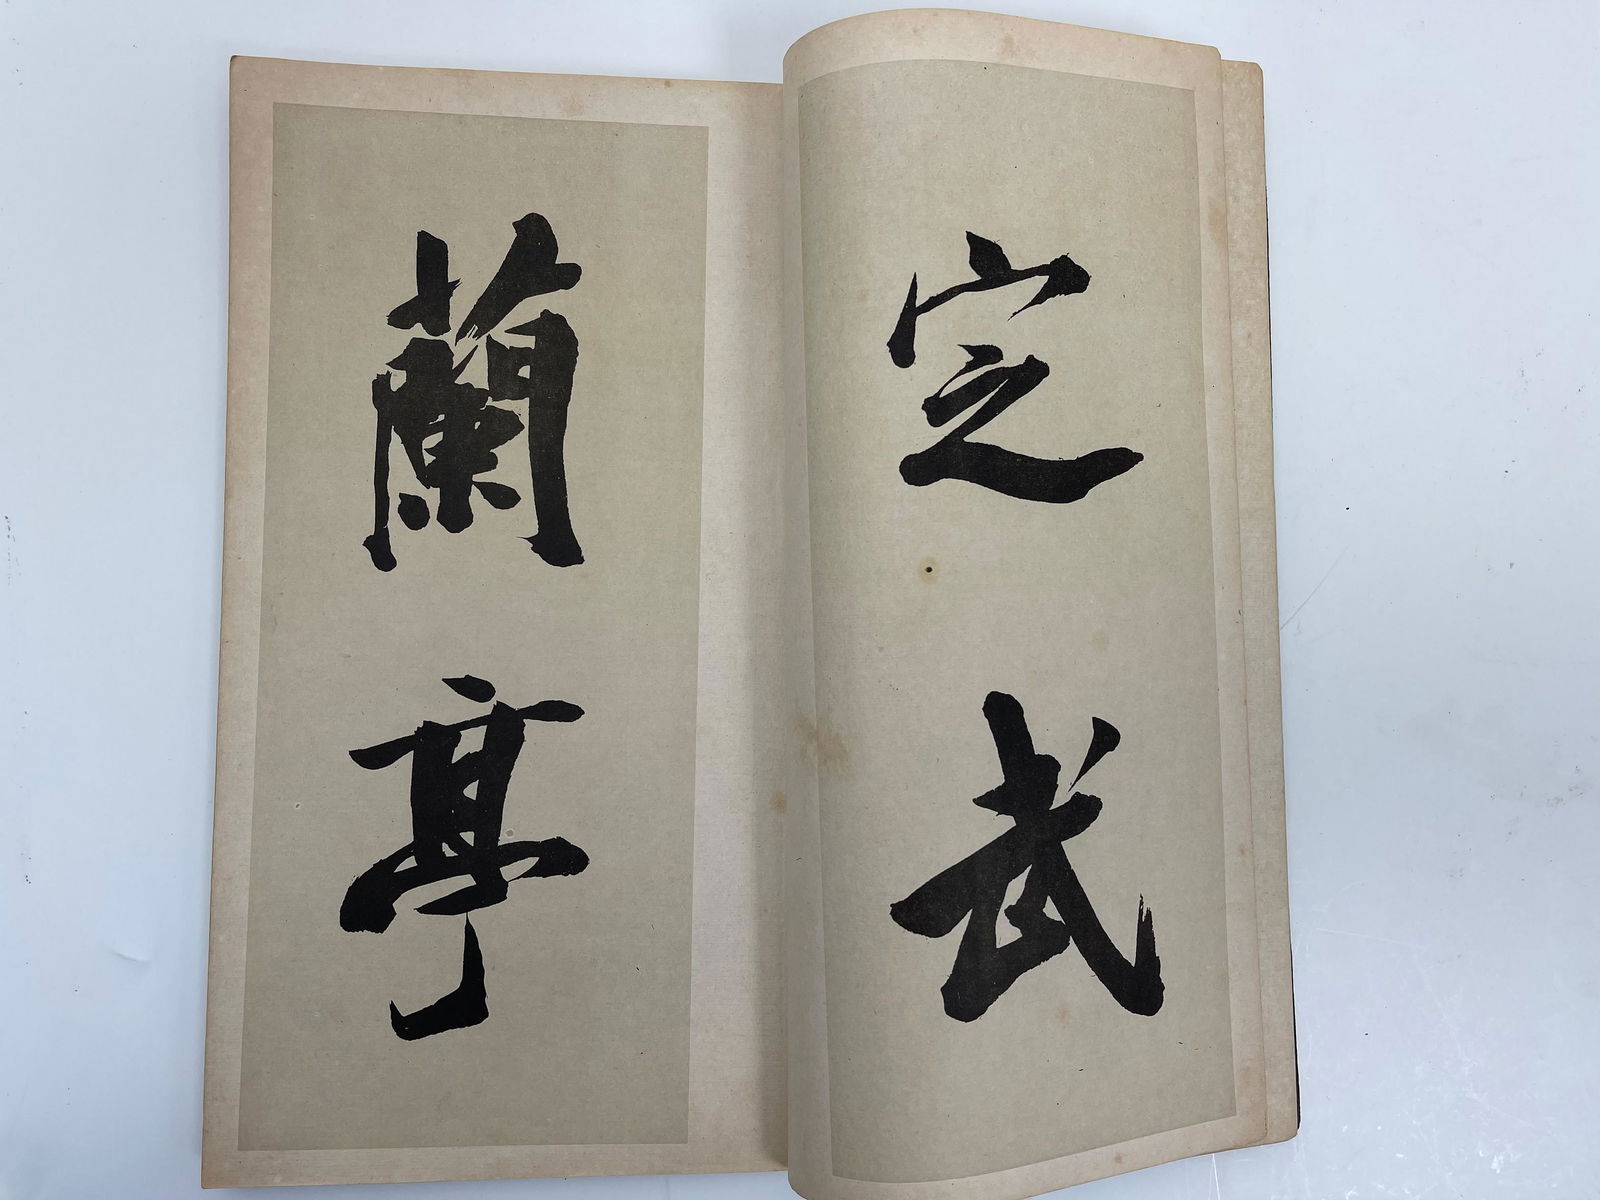 定武
蘭亭